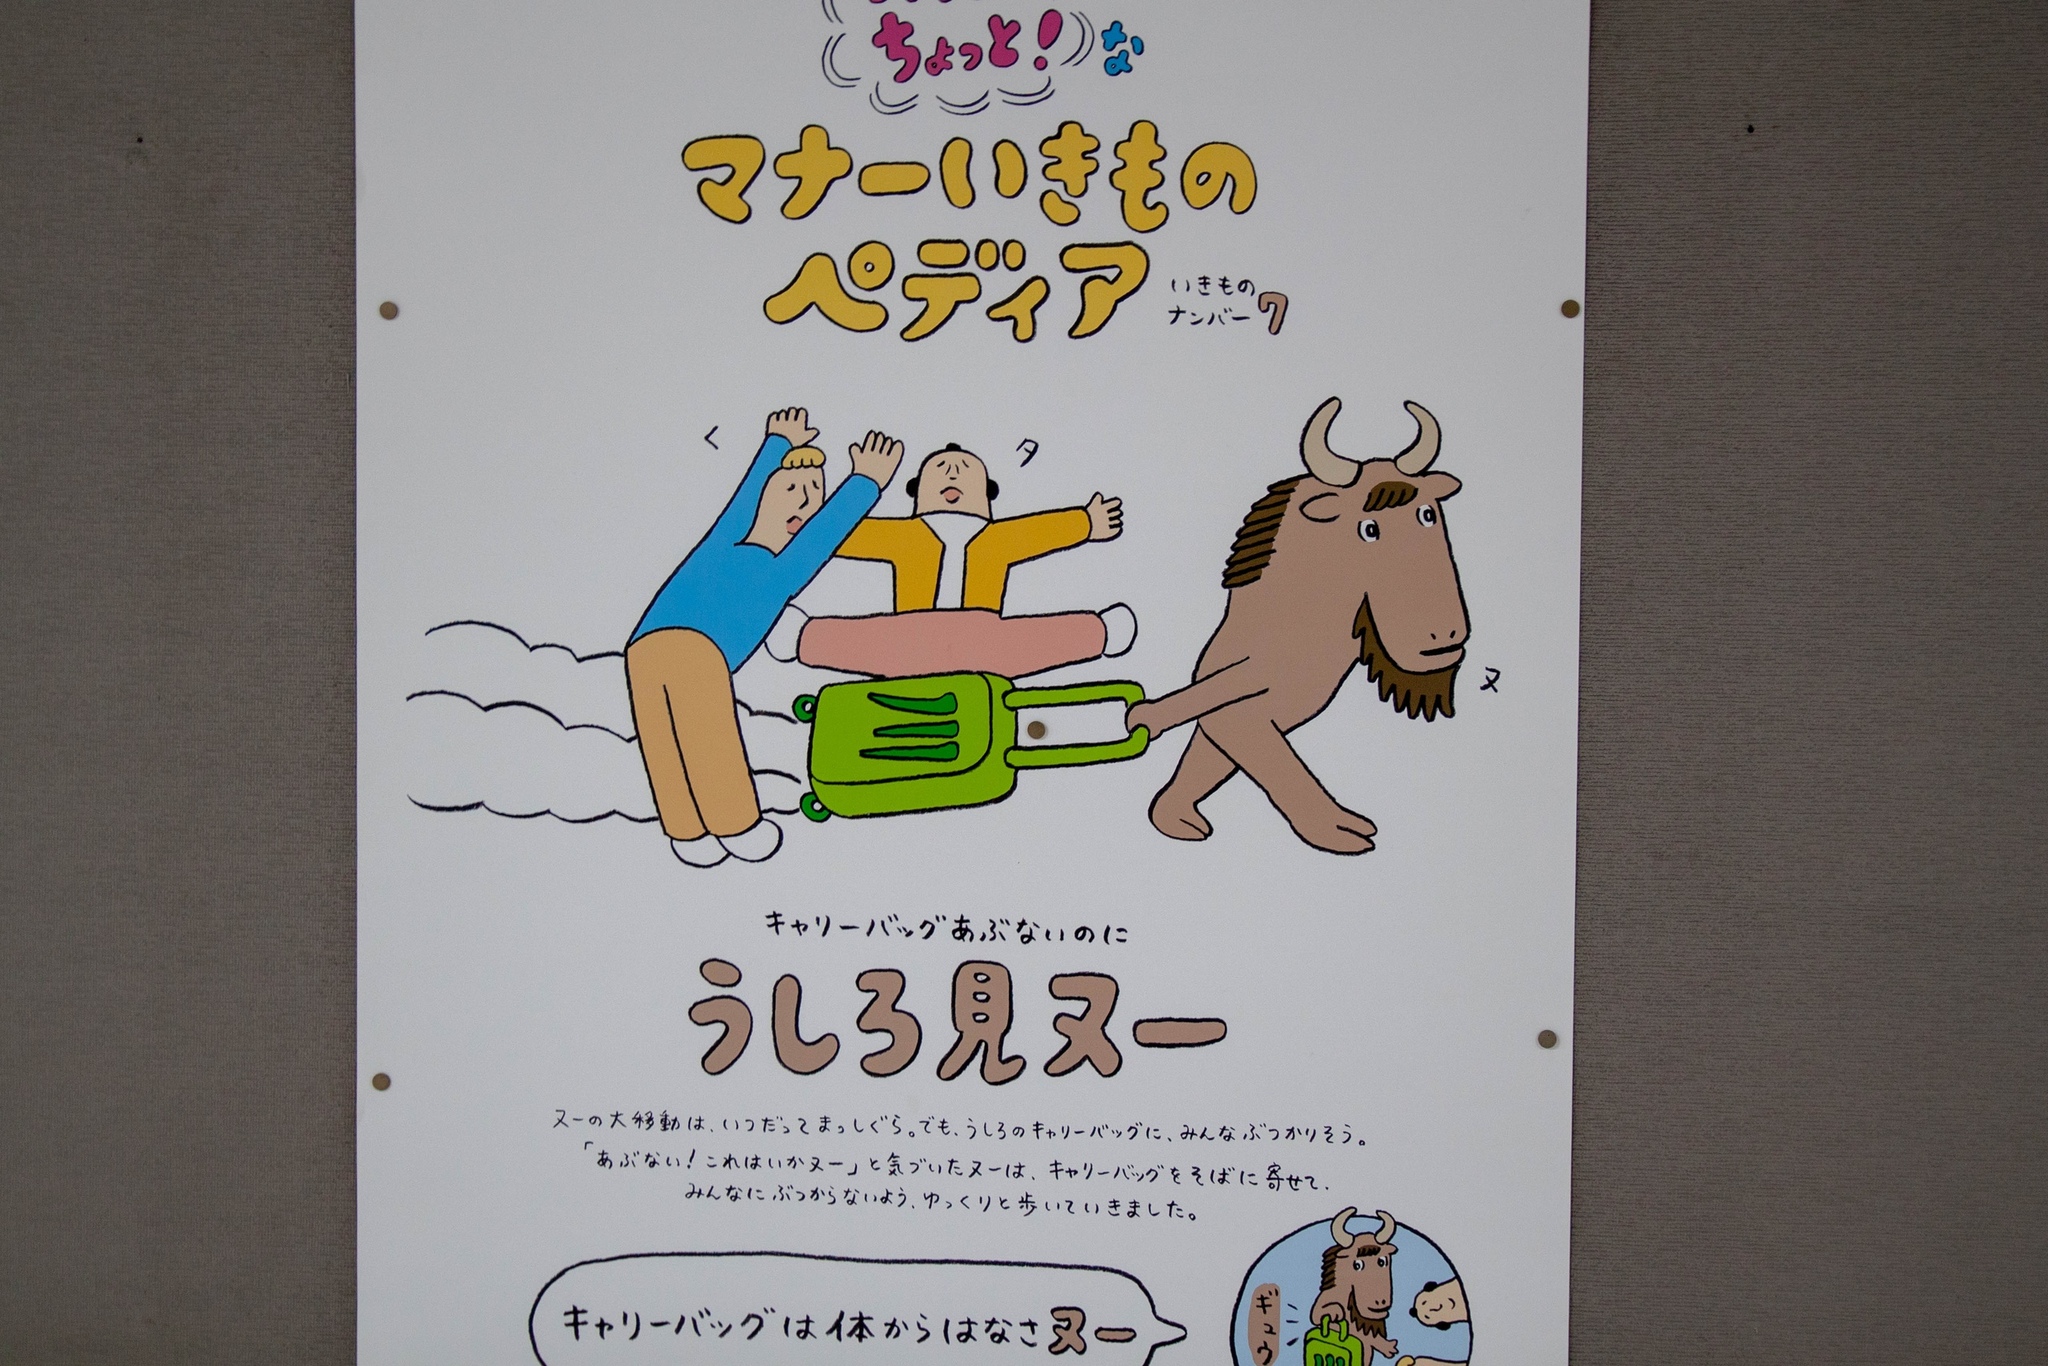 ちょっと!な
マナーいきもの
ペディア
いきもの
ナンバー7
く
タ
ヌ
キャリーバッグあぶないのに
うしろ見ヌー
ヌーの大移動は、いつだってまっしぐら。でも、うしろのキャリーバッグに、みんなぶつかりそう。
「あぶない!これはいかヌー」と気づいたヌーは、キャリーバッグをそばに寄せて、
みんなにぶつからないよう、ゆっくりと歩いていきました。
キャリーバッグは体からはなさヌー
ギュウ